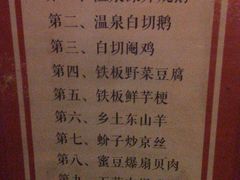 第二、温泉白切鹅
第三、白切阉鸡
第四、铁板野菜豆腐
第五、铁板鲜芋梗
第六、乡土东山羊
第七、蚡子炒京丝
第八、蜜豆爆扇贝肉